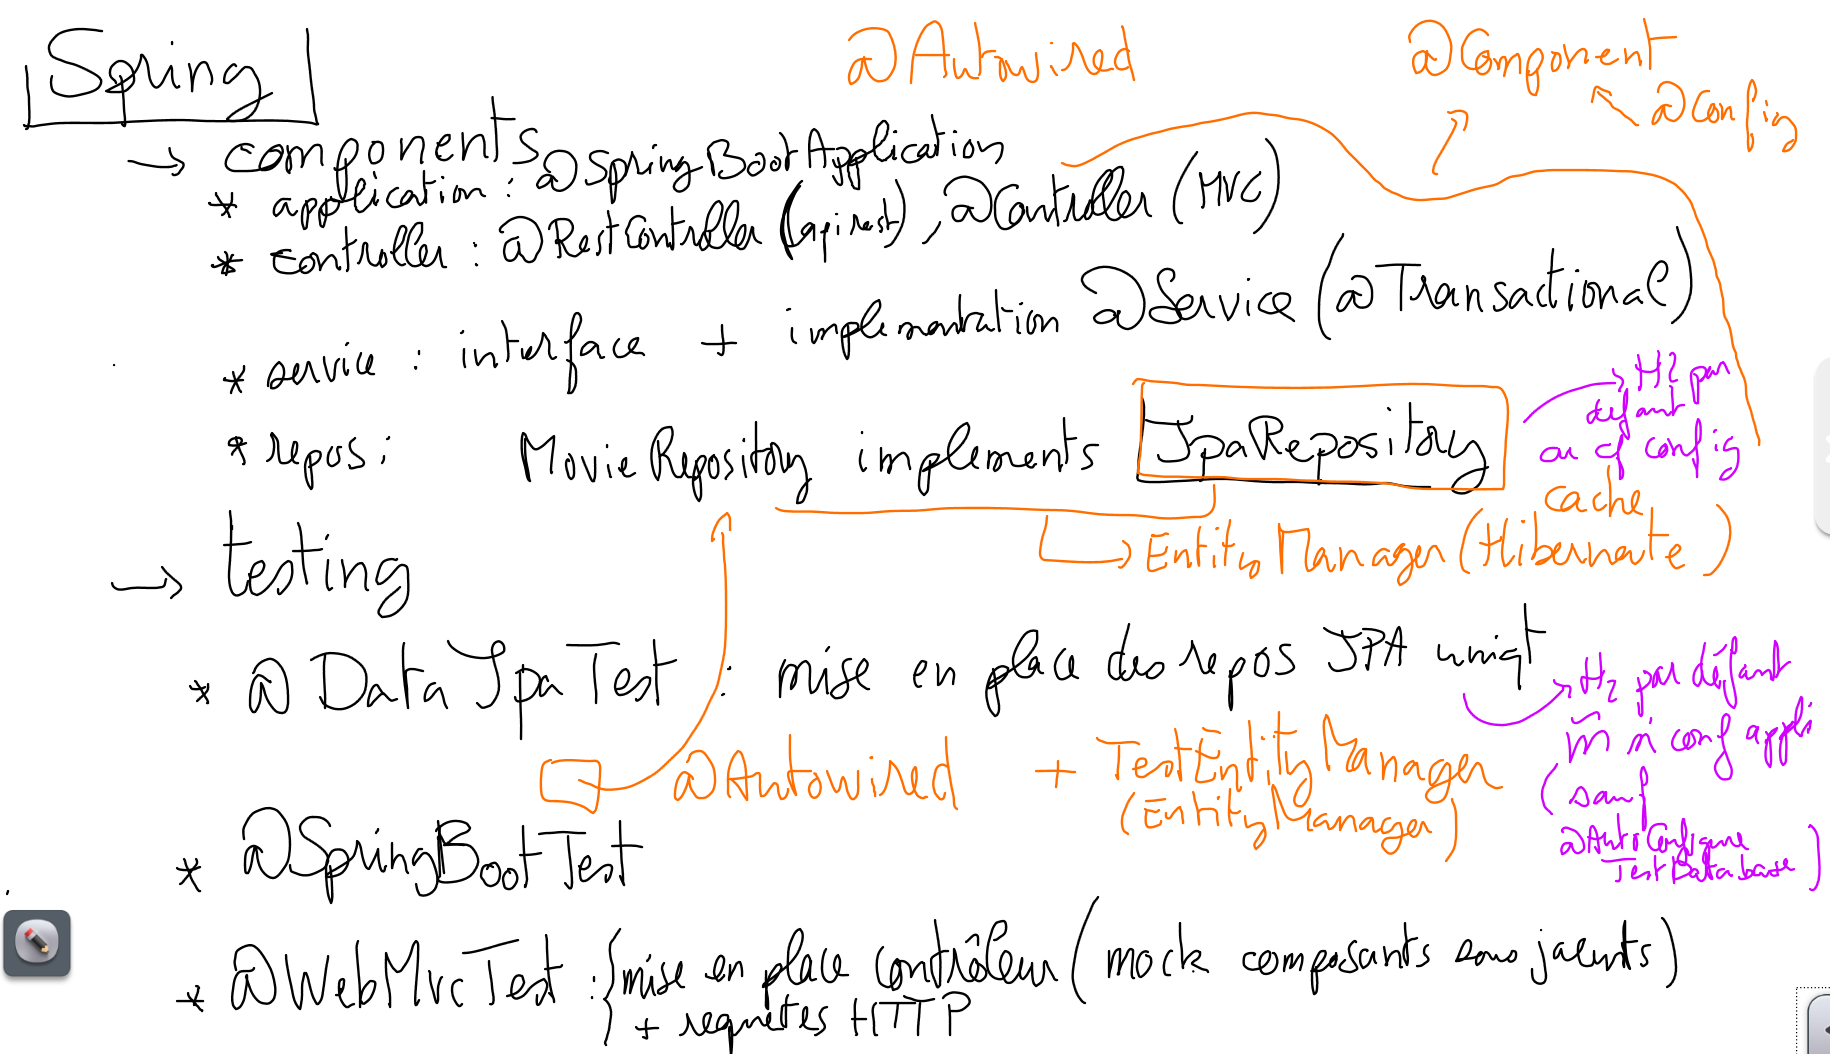 Spring
@Autowired
@Component
@Config
→ components
* application : @SpringBootApplication
* controller : @RestController (api rest), @Controller (MVC)
* service : interface + implementation @Service (@Transactional)
* repos : MovieRepository implements JpaRepository
→ H2 par
défaut
ou cf config
cache
→ EntityManager (Hibernate)
→ testing
* @DataJpaTest : mise en place des repos JPA uniqt
→ H2 par défaut
m̃ si conf appli
(sauf
@AutoConfigure
TestDatabase)
@Autowired + TestEntityManager
(EntityManager)
* @SpringBootTest
* @WebMvcTest : { mise en place contrôleur (mock composants sous jacents)
+ requêtes HTTP